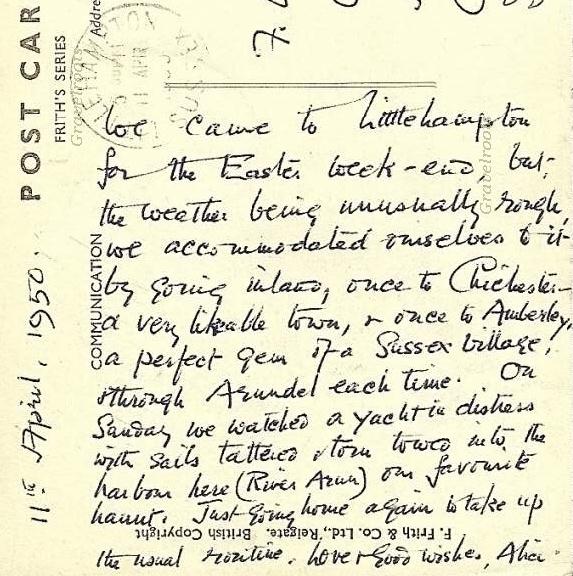 We came to Littlehampton
for the Easter week-end but
the weather being unusually rough,
we accommodated ourselves to it
by going inland, once to Chichester–
a very likeable town, & once to Amberley,
a perfect gem of a Sussex village,
& through Arundel each time. On
Sunday we watched a yacht in distress
with sails tattered & torn towed into the
harbour here (River Arun) our favourite
haunt. Just going home again to take up
the usual routine. Love & Good wishes, Alice.
11th April, 1950.
POST CAR
FRITH'S SERIES
Addre
COMMUNICATION
F. Frith & Co. Ltd., Reigate. British Copyright
LEHAMPTON
11 APR
SUSSEX
Gravelroots
Gravelroots
7.